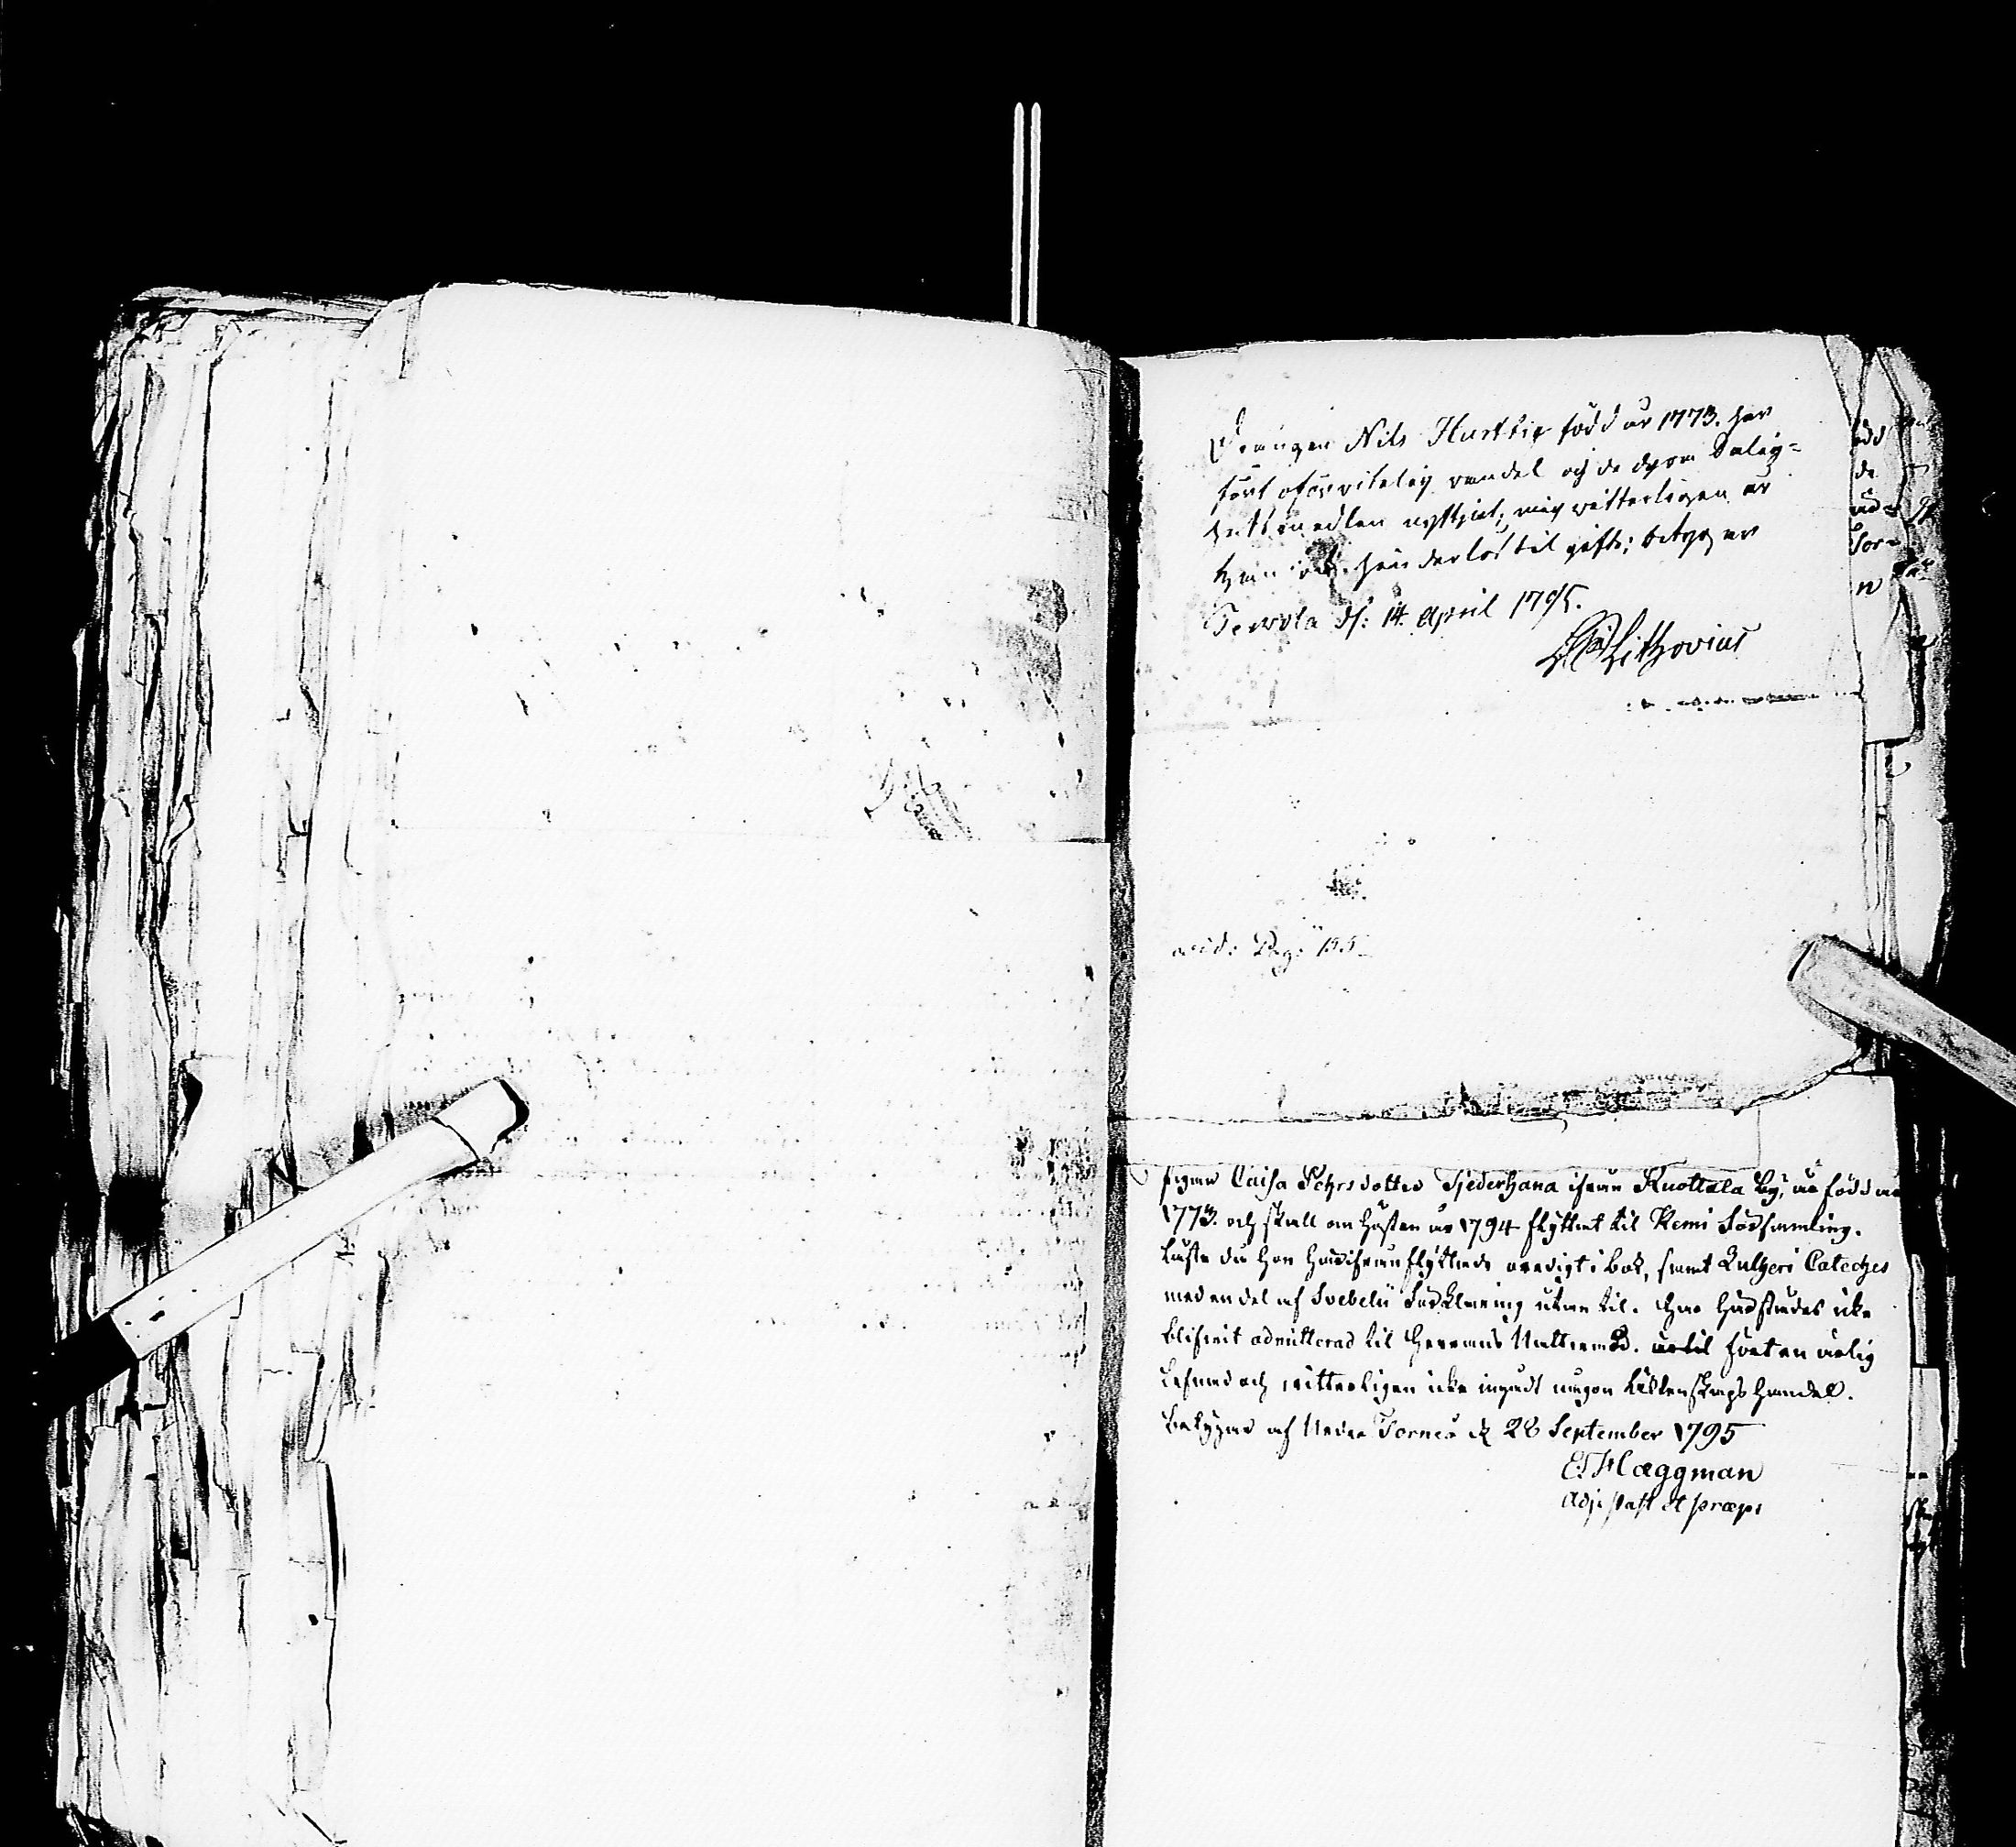 Drängen Nils Hurttig född år 1773. har
fört oförvitelig vandel och de dyra Salig-
hets medlen nyttjat, mig witterligen är
han ock hinderlös til gifte; betygar
Terwola d: 14. April 1795.
Lithovius
vid: Pag: 155
Pigan Caisa Pehrsdotter Tjederhana ifrån Kuottala By, är född år
1773. och skall om hösten år 1794 flyttat til Kemi Församling.
Läste då hon härifrån flyttade ovedigt i bok, samt Lutheri Cateches
med en del af Svebelii Förklaring utan til. Har härstädes icke
blifvit admitterad til Herrans Nattvard. fört en ärlig
Lefnad och, witterligen icke ingådt någon Ächtenskaps handel.
Betygar af Neder Torneå d 28 September 1795
E: Hæggman
Adj: past et præp: